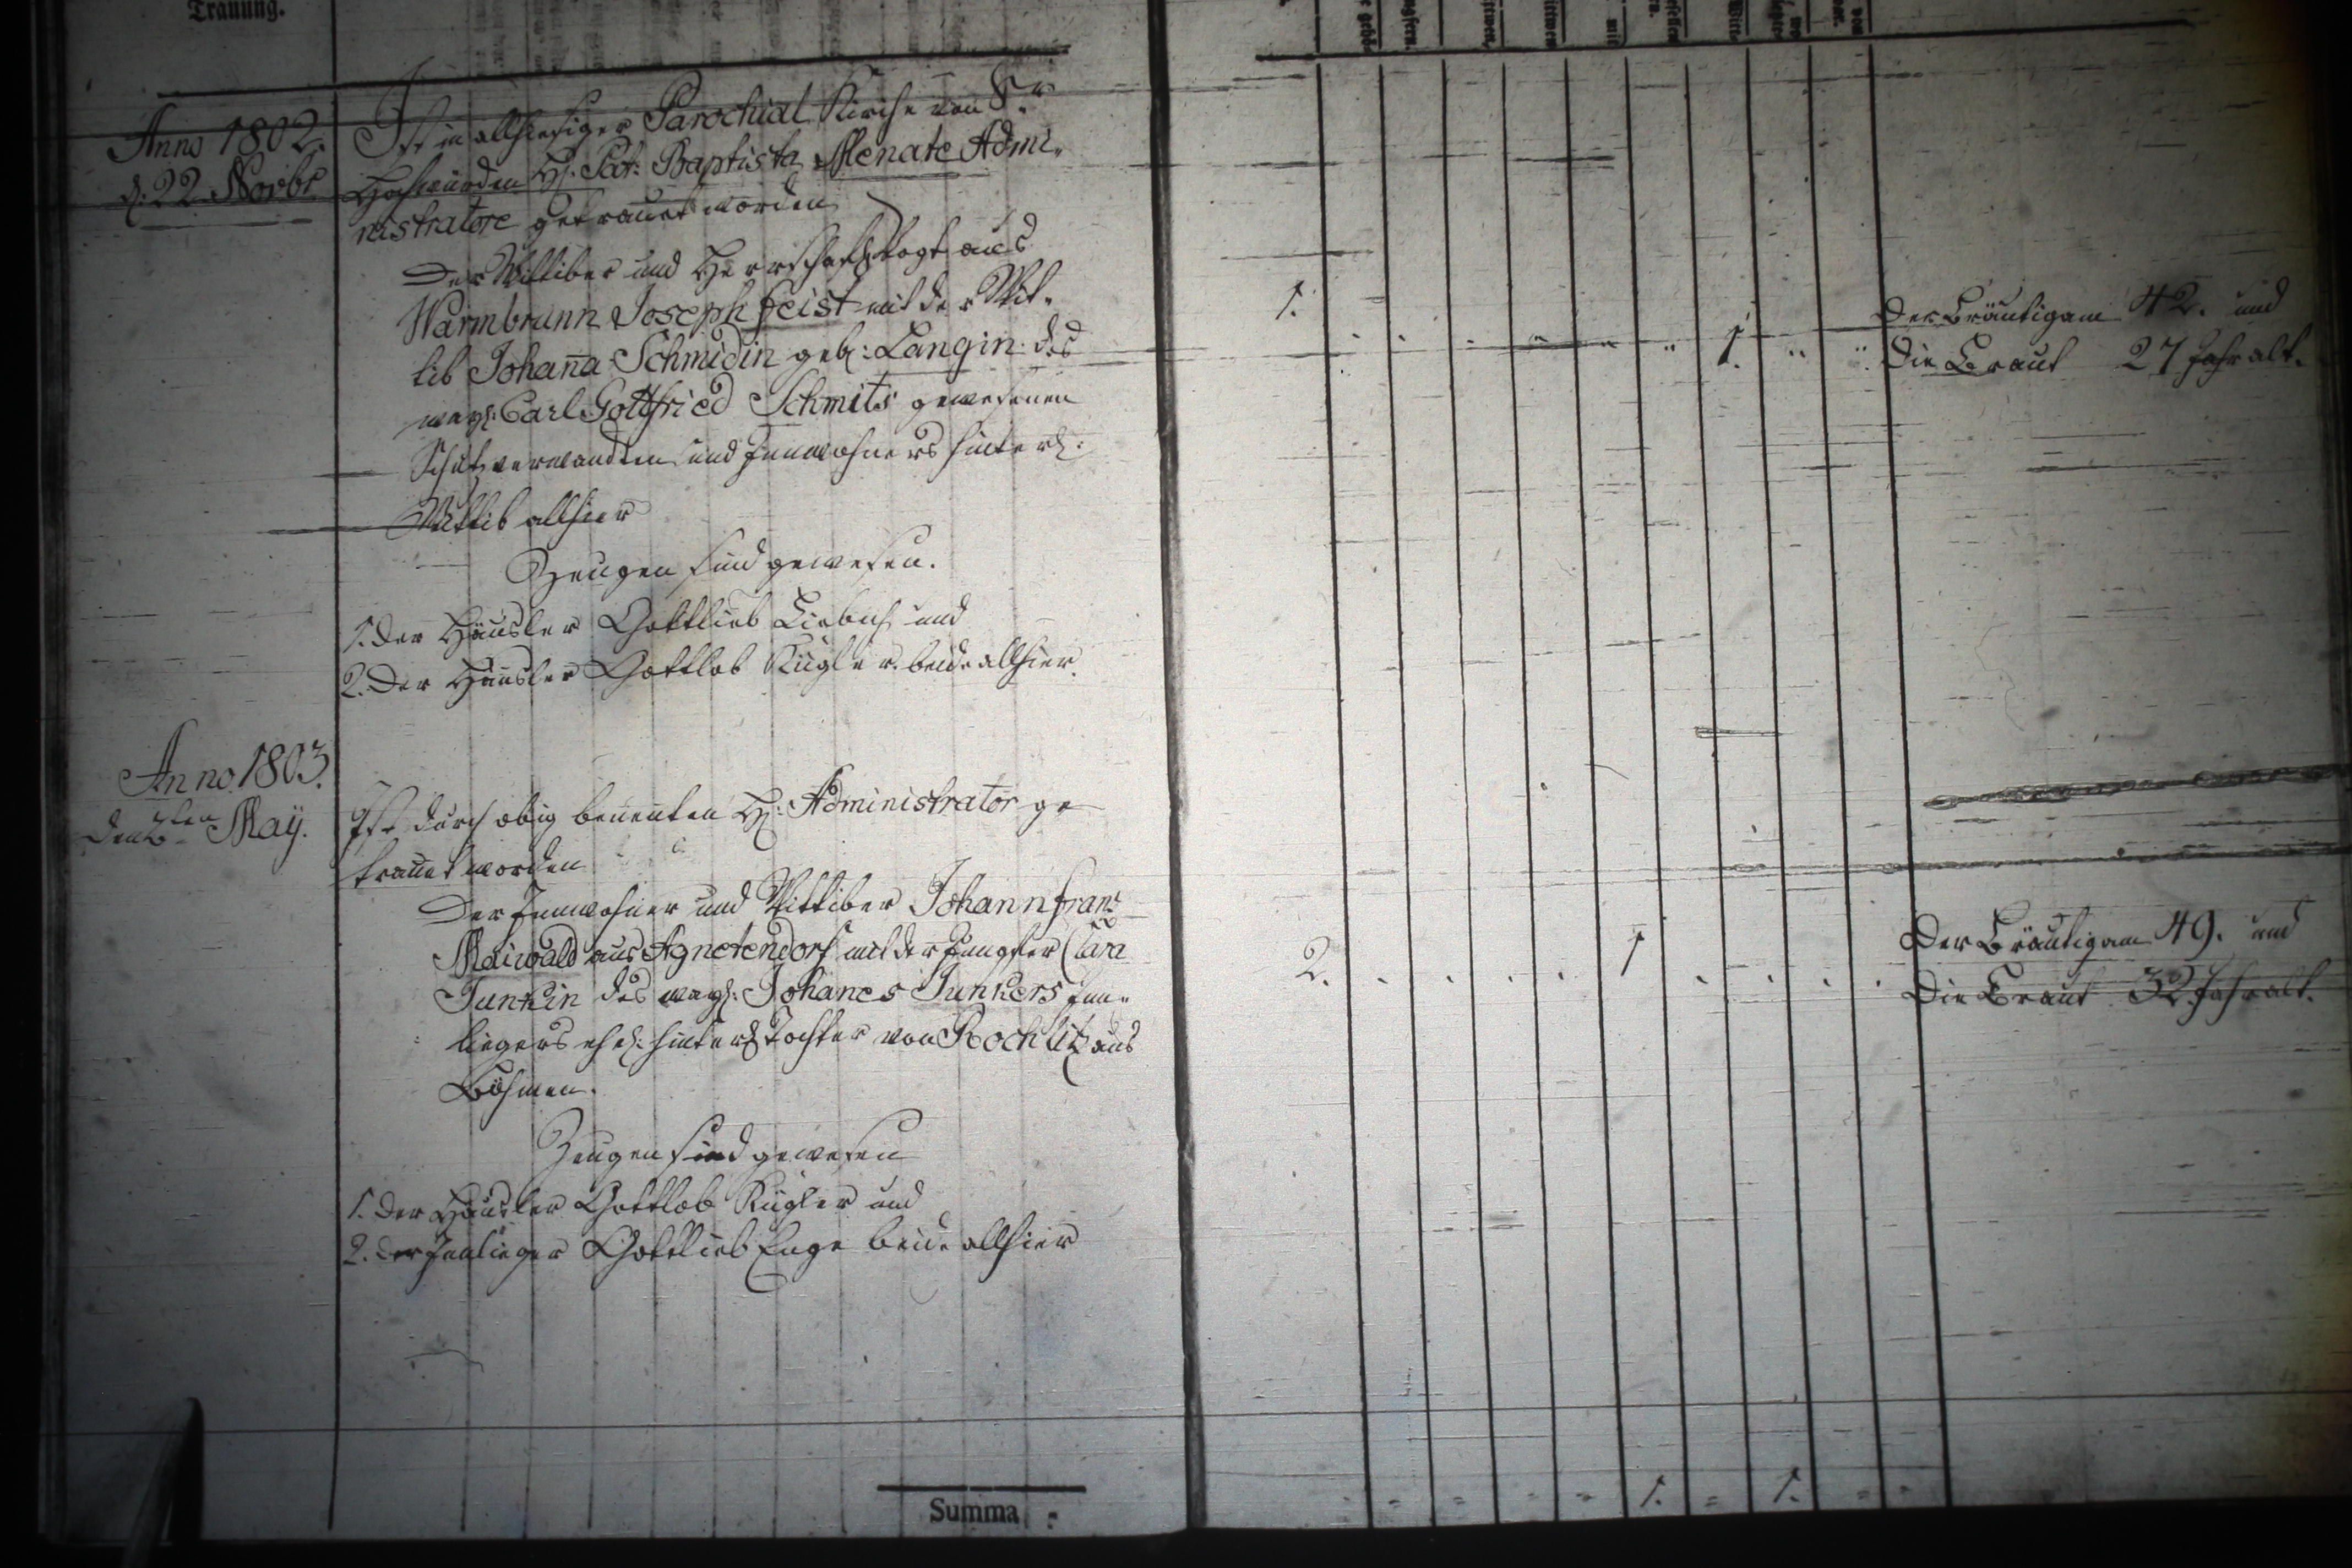 Trauung.
Anno 1802.
d. 22. Novbr
Ist in allhiesiger Parochial Kirche von Sr.
Hochwürden H. Pat: Baptista Menate Admi-
nistratore getrauet worden
Der Wittiber und Herrschaftsvogt aus
Warmbrunn Joseph Feist mit der Wit-
tib Johaña Schmidin geb: Langin. des
weyl: Carl Gottfried Schmits gewesenen
Schutzverwandten und Innwohners hinterl:
Wittib allhier
Zeugen sind gewesen.
1. Der Häusler Gottlieb Liebich und
2. Der Häusler Gottlob Kügler beide allhier.
1. 1.
Der Bräutigam 42. und
Die Braut 27 Jahr alt.
Anno 1803.
den ten May.
Ist durch obig benenten H: Administrator ge
trauet worden
Der Innwohner und Wittiber Johann Franz
Maiwald aus Agnetendorf mit der Jungfer Clara
Junkin des weyl: Johanes Junkers Inn-
liegers ehel: hinterl Tochter von Rochlitz aus
Böhmen.
Zeugen sind gewesen
1. Der Häusler Gottlob Kügler und
2. der Innlieger Gottlieb Enge beide allhier
2. 1
Der Bräutigam 49. und
Die Braut 32 Jahr alt.
Summa : 1. 1.